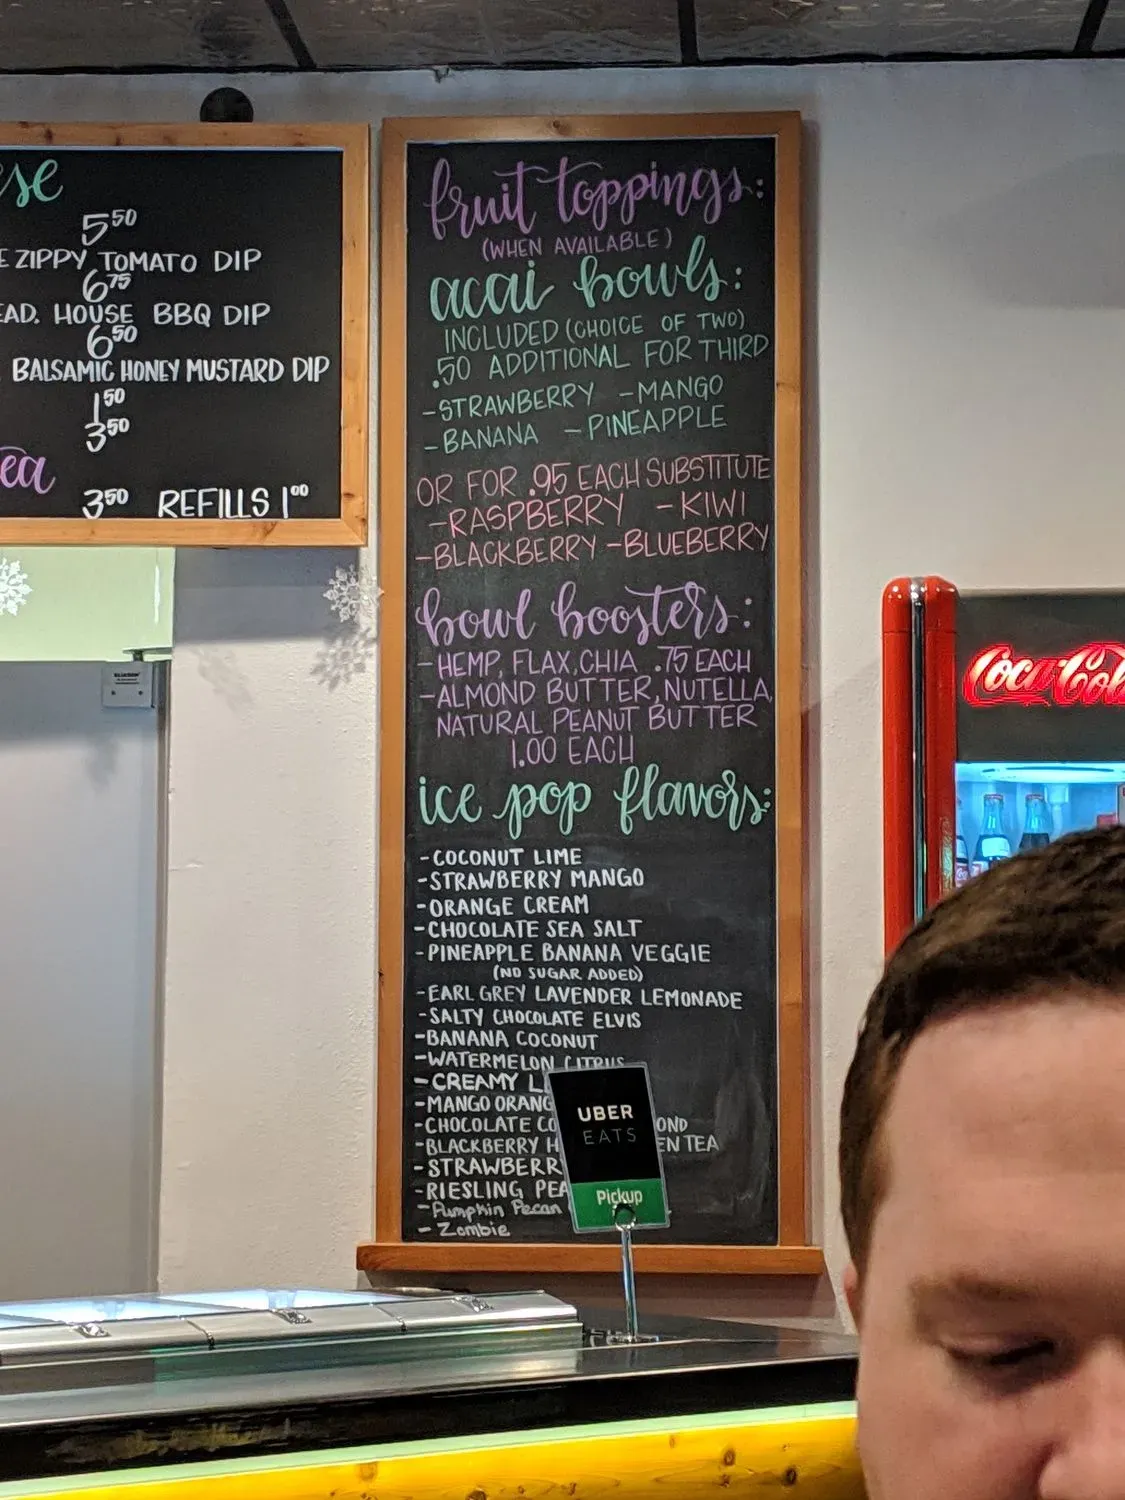 ese
5.50
E ZIPPY TOMATO DIP
6.75
EAD. HOUSE BBQ DIP
6.50
BALSAMIC HONEY MUSTARD DIP
1.50
3.50
ea
3.50 REFILLS 1.00
fruit toppings:
(WHEN AVAILABLE)
acai bowls:
INCLUDED (CHOICE OF TWO)
.50 ADDITIONAL FOR THIRD
-STRAWBERRY -MANGO
-BANANA -PINEAPPLE
OR FOR .95 EACH SUBSTITUTE
-RASPBERRY -KIWI
-BLACKBERRY -BLUEBERRY
bowl boosters:
-HEMP, FLAX, CHIA .75 EACH
-ALMOND BUTTER, NUTELLA,
NATURAL PEANUT BUTTER
1.00 EACH
ice pop flavors:
-COCONUT LIME
-STRAWBERRY MANGO
-ORANGE CREAM
-CHOCOLATE SEA SALT
-PINEAPPLE BANANA VEGGIE
(NO SUGAR ADDED)
-EARL GREY LAVENDER LEMONADE
-SALTY CHOCOLATE ELVIS
-BANANA COCONUT
-WATERMELON CITRUS
-CREAMY L
-MANGO ORANG
-CHOCOLATE CO OND
-BLACKBERRY H EN TEA
-STRAWBERR
-RIESLING PEA
-Pumpkin Pecan
-Zombie
UBER
EATS
Pickup
Coca-Col
ELIASON